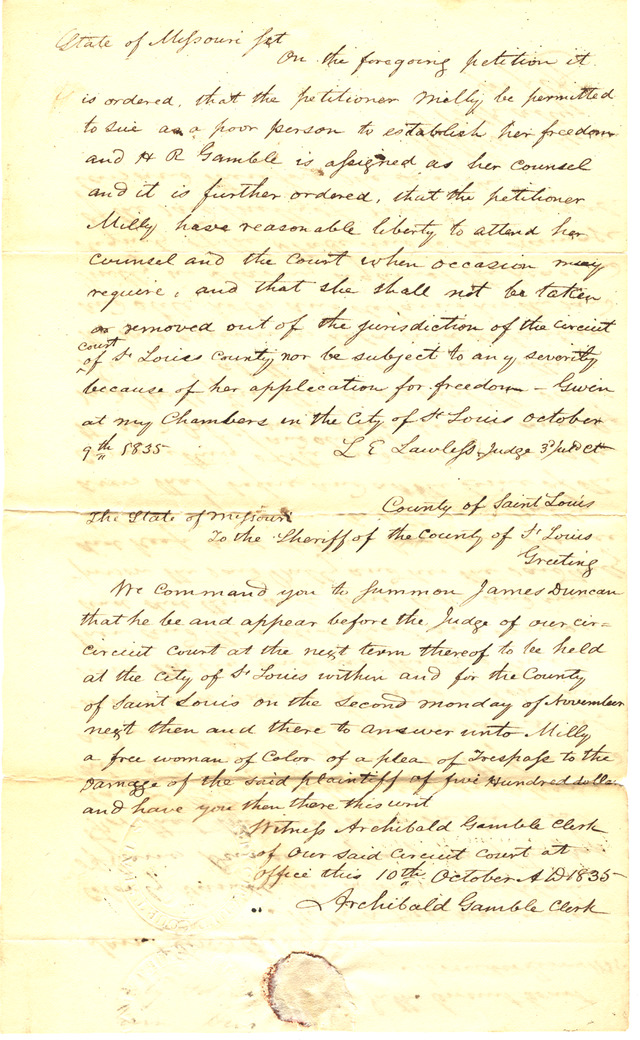 State of Missouri Sct
On the foregoing petition it
is ordered, that the petitioner Milly be permitted
to sue as a poor person to establish her freedom
and H R Gamble is assigned as her counsel
and it is further ordered, that the petitioner
Milly have reasonable liberty to attend her
counsel and the Court when occasion may
require, and that she shall not be taken
or removed out of the jurisdiction of the circuit
court
of St Louis county nor be subject to any severity
because of her application for freedom - Given
at my Chambers in the City of St Louis October
9th 1835 L E Lawless Judge 3d Jud Ct
County of Saint Louis
The State of Missouri
To the Sheriff of the County of St Louis
Greeting
We command you to summon James Duncan
that he be and appear before the Judge of our cir=
circuit court at the next term thereof to be held
at the city of St Louis within and for the County
of Saint Louis on the second monday of November
next then and there to answer unto Milly
a free woman of Color of a plea of Trespass to the
Damage of the said plaintiff of five Hundred dolla
and have you then there this writ
Witness Archibald Gamble Clerk
of our said circuit court at
office this 10th October AD 1835
Archibald Gamble Clerk